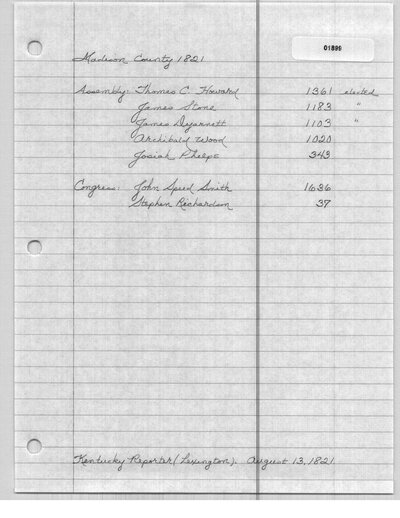 01899
Madison County 1821
Assembly: Thomas C. Howard 1361 elected
James Stone 1183 "
James Dejarnett 1103 "
Archibald Wood 1020
Josiah Phelps 343
Congress: John Speed Smith 1636
Stephen Richardson 37
Kentucky Reporter (Lexington). August 13, 1821